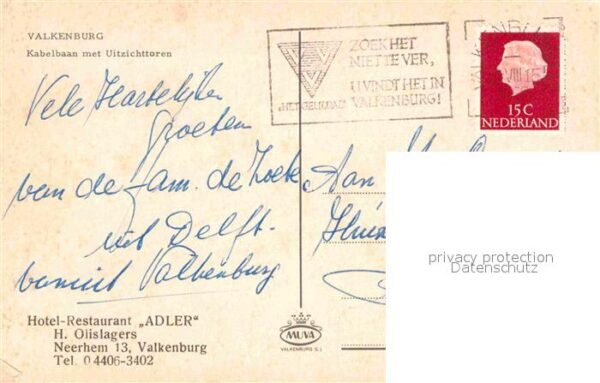 VALKENBURG
Kabelbaan met Uitzichttoren
ZOEK HET
NIET TE VER,
U VINDT HET IN
VALKENBURG!
15 C
NEDERLAND
Vele Hartelijke
groeten
van de fam. de
uit Delft.
vanuit Valkenburg
Aan
privacy protection
Datenschutz
Hotel-Restaurant „ADLER"
H. Olislagers
Neerhem 13, Valkenburg
Tel. 0 4406-3402
MUVA
VALKENBURG